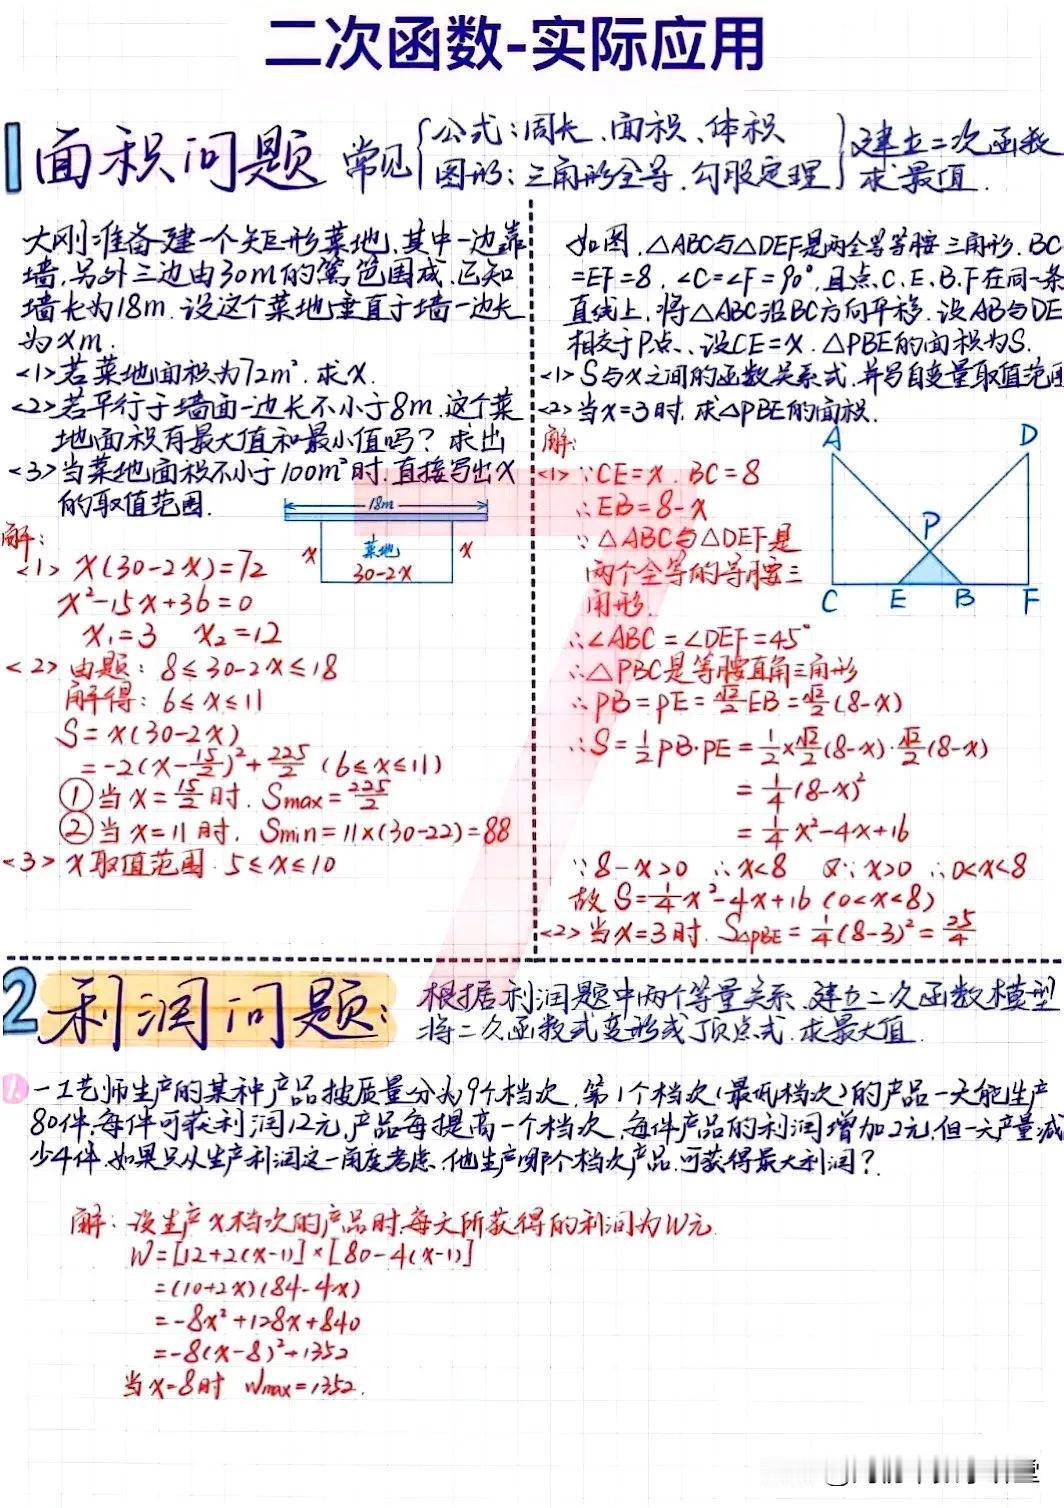 二次函数-实际应用
1 面积问题 常见
公式:周长、面积、体积
图形:三角形全等、勾股定理
建立二次函数
求最值.
大刚准备建一个矩形菜地,其中一边靠
墙,另外三边由30m的篱笆围成,已知
墙长为18m.设这个菜地垂直于墙一边长
为xm.
<1>若菜地面积为72m²,求x.
<2>若平行于墙面一边长不小于8m,这个菜
地面积有最大值和最小值吗?求出
<3>当菜地面积不小于100m²时,直接写出x
的取值范围.
18m
x
菜地
x
30-2x
解:
<1> x(30-2x)=72
x²-15x+36=0
x₁=3 x₂=12
<2> 由题: 8≤30-2x≤18
解得: 6≤x≤11
S=x(30-2x)
=-2(x-15/2)²+225/2 (6≤x≤11)
①当x=15/2时. Smax=225/2
②当x=11时. Smin=11×(30-22)=88
<3> x取值范围.5≤x≤10
如图,△ABC与△DEF是两全等等腰三角形.BC
=EF=8,∠C=∠F=90°,且点C、E、B、F在同一条
直线上,将△ABC沿BC方向平移.设AB与DE
相交于P点、设CE=x.△PBE的面积为S.
<1>S与x之间的函数关系式,并写自变量取值范围
<2>当x=3时,求△PBE的面积.
A
D
P
C
E
B
F
解:
<1> ∵CE=x. BC=8
∴EB=8-x
∵△ABC与△DEF是
两个全等的等腰三
角形.
∴∠ABC=∠DEF=45°
∴△PBC是等腰直角三角形
∴PB=PE=√2/2EB=√2/2(8-x)
∴S=1/2PB·PE=1/2×√2/2(8-x)·√2/2(8-x)
=1/4(8-x)²
=1/4x²-4x+16
∵8-x>0 ∴x<8 又∵x>0 ∴0<x<8
故 S=1/4x²-4x+16 (0<x<8)
<2>当x=3时. S△PBE=1/4(8-3)²=25/4
2 利润问题:
根据利润题中两个等量关系,建立二次函数模型
将二次函数式变形或顶点式,求最大值.
1.一工艺师生产的某种产品按质量分为9个档次.第1个档次(最低档次)的产品一天能生产
80件,每件可获利润12元,产品每提高一个档次,每件产品的利润增加2元,但一天产量减
少4件.如果只从生产利润这一角度考虑,他生产哪个档次产品,可获得最大利润?
解:设生产x档次的产品时,每天所获得的利润为W元.
W=[12+2(x-1)]×[80-4(x-1)]
=(10+2x)(84-4x)
=-8x²+128x+840
=-8(x-8)²+1352
当x=8时 Wmax=1352.